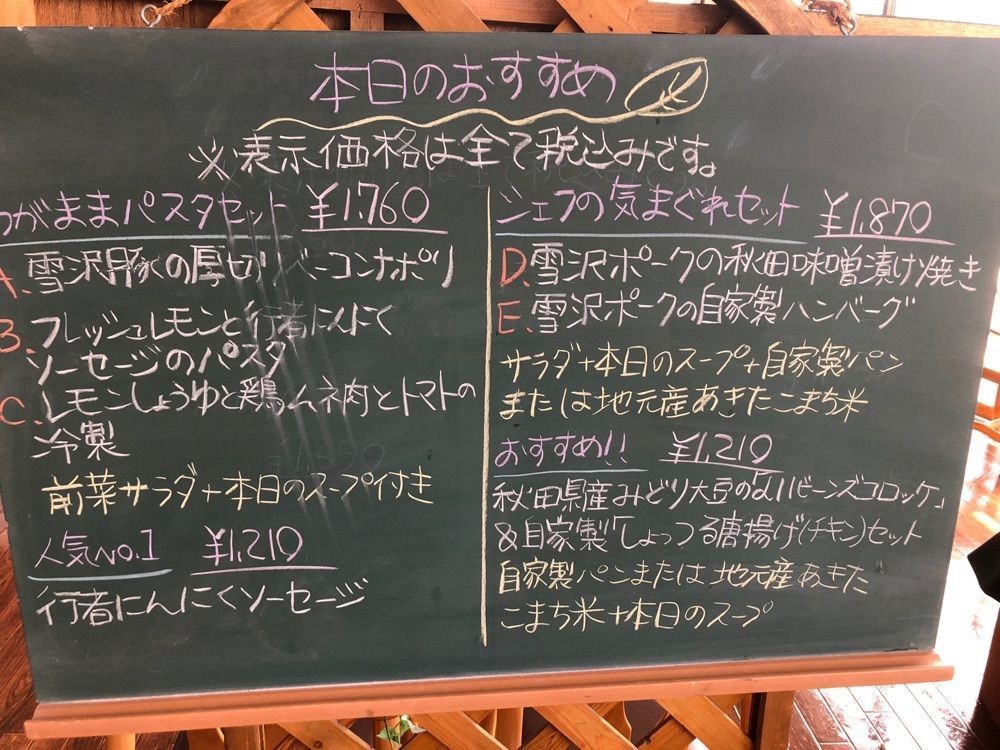 本日のおすすめ
※表示価格は全て税込みです。
わがままパスタセット ¥1,760
A. 雪沢豚の厚切りベーコンナポリ
B. フレッシュレモンと行者にんにく
ソーセージのパスタ
C. レモンしょうゆと鶏ムネ肉とトマトの
冷製
前菜サラダ+本日のスープ付き
人気No.1 ¥1,210
行者にんにくソーセージ
シェフの気まぐれセット ¥1,870
D. 雪沢ポークの秋田味噌漬け焼き
E. 雪沢ポークの自家製ハンバーグ
サラダ+本日のスープ+自家製パン
または地元産あきたこまち米
おすすめ!! ¥1,210
秋田県産みどり大豆の「ビーンズコロッケ」
&自家製「しょっつる唐揚げ(チキン)セット
自家製パンまたは地元産あきた
こまち米+本日のスープ